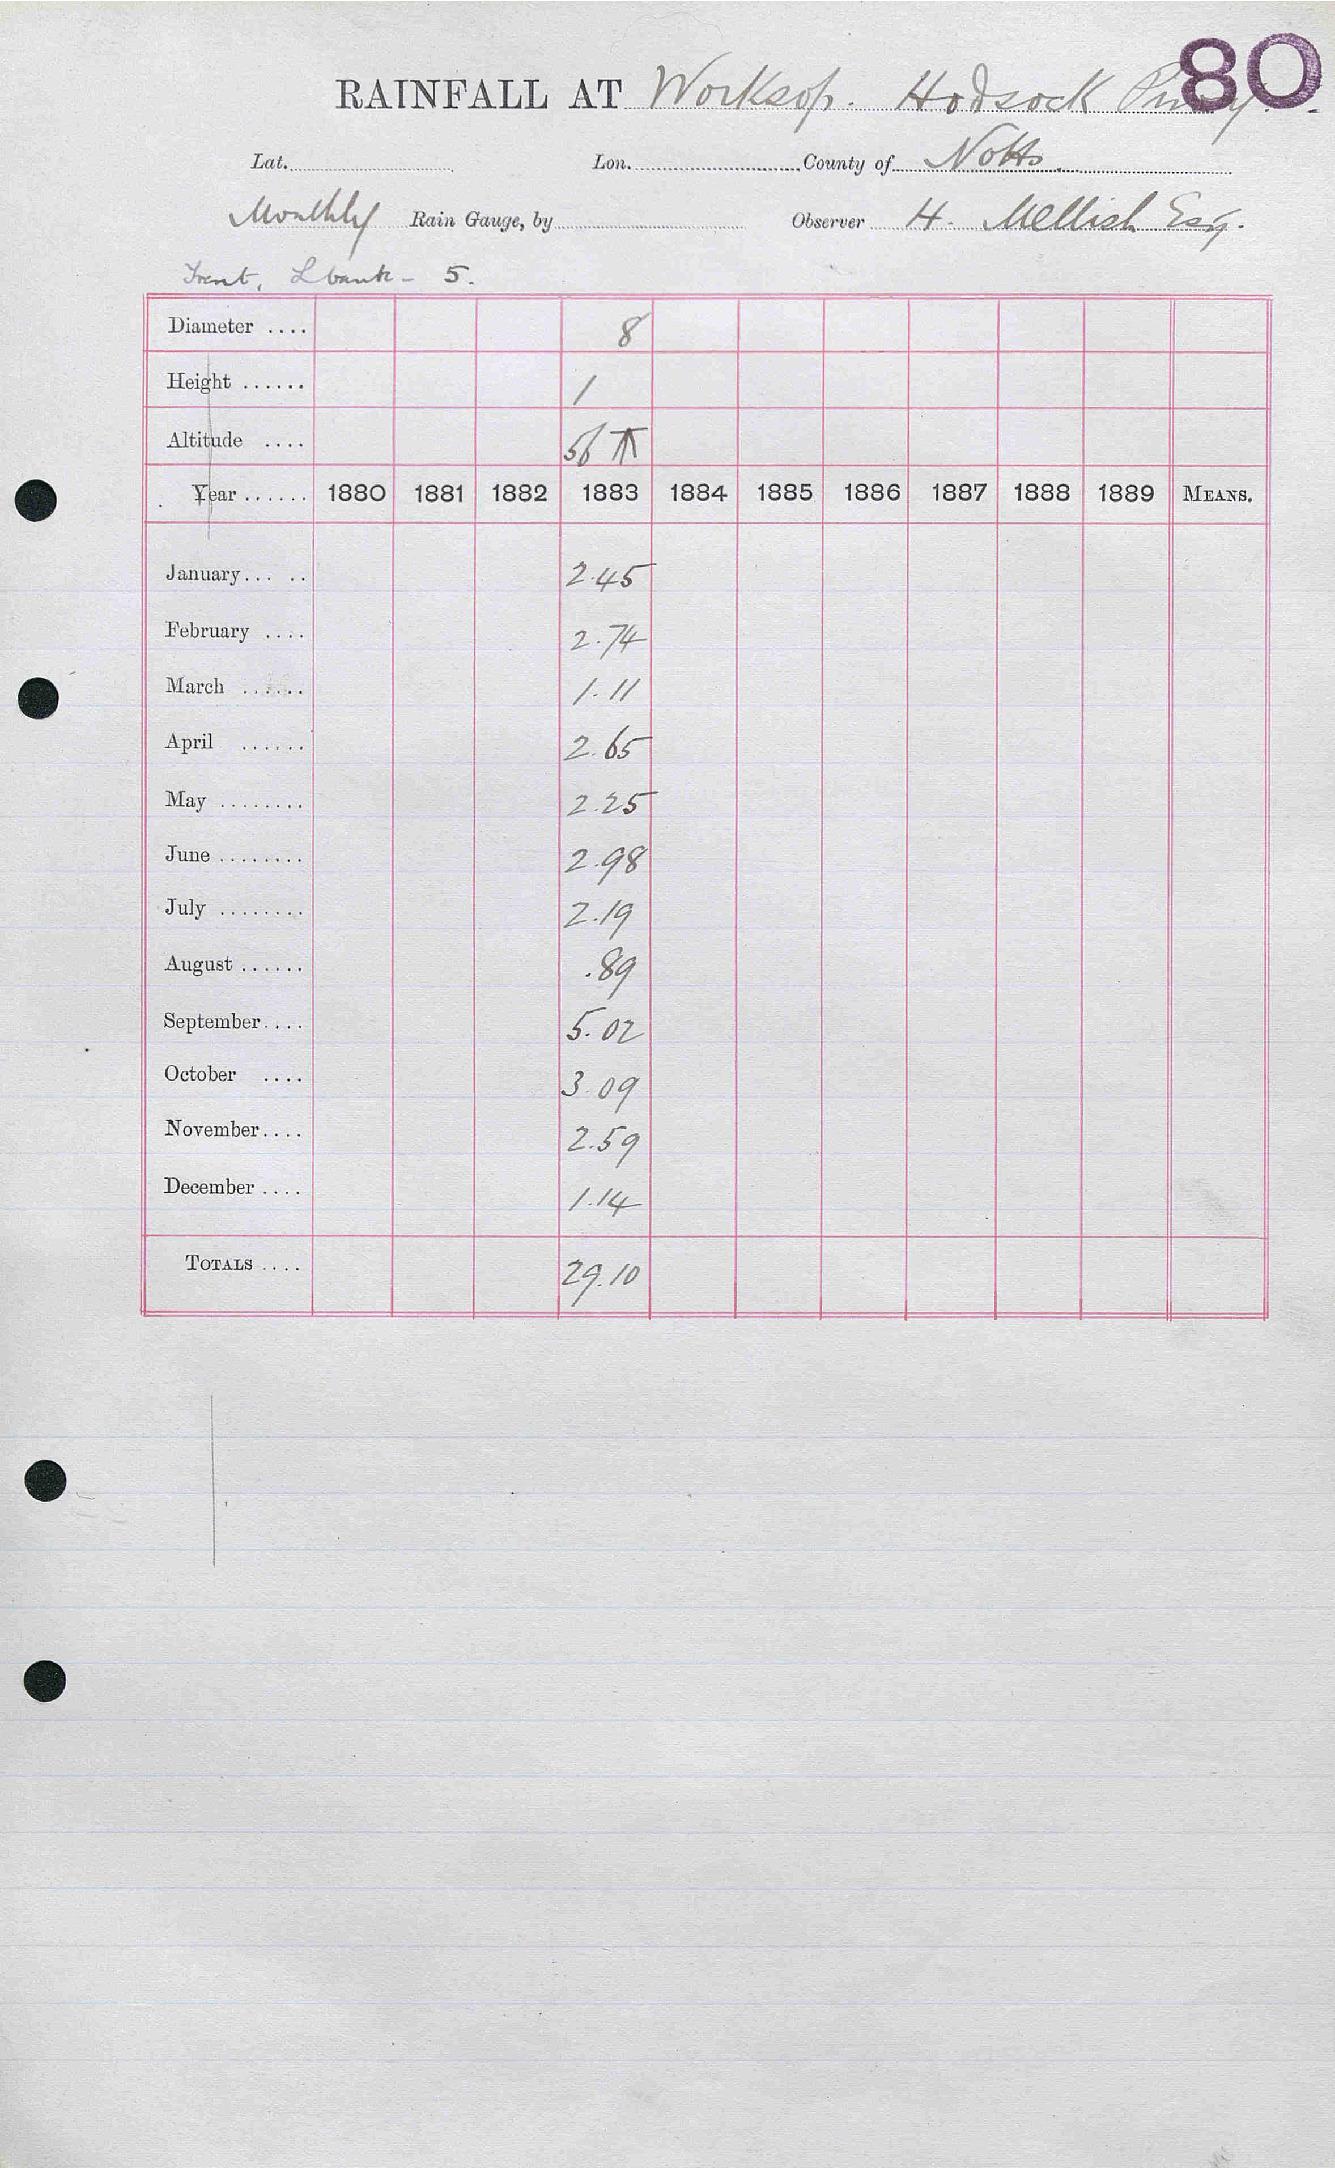 80
RAINFALL AT Worksop. Hodsock Priory.
Lat. Lon. County of Notts
Monthly Rain Gauge, by Observer H. Mellish Esq.
Trent, L bank - 5.
Diameter .... 8
Height ...... 1
Altitude .... 56
Year ...... 1880 1881 1882 1883 1884 1885 1886 1887 1888 1889 MEANS.
January... .. 2.45
February .... 2.74
March ...... 1.11
April ...... 2.65
May ........ 2.25
June ........ 2.98
July ........ 2.19
August ...... .89
September.... 5.02
October .... 3.09
November.... 2.59
December .... 1.14
TOTALS .... 29.10